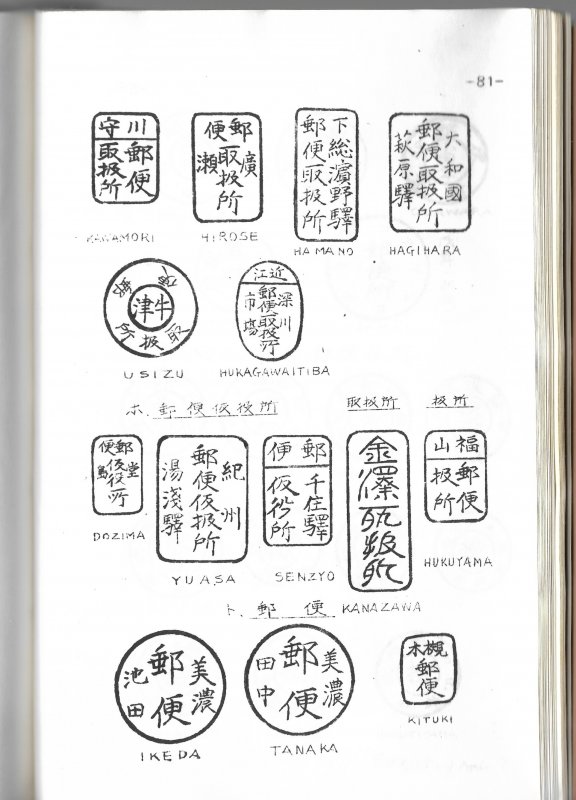 -81-
川守
郵便
取扱所
KAWAMORI
郵便
廣瀬
取扱所
HIROSE
下総濵野驛
郵便取扱所
HAMANO
大和國
郵便取扱所
萩原驛
HAGIHARA
牛津
取扱所
USIZU
近江
深川
郵便取扱所
市場
HUKAGAWAITIBA
ホ. 郵便仮役所
取扱所
扱所
郵便
堂島
仮役所
DOZIMA
紀州
郵便仮扱所
湯淺驛
YUASA
郵便
千住驛
仮役所
SENZYO
金澤取扱所
KANAZAWA
福山
郵便
扱所
HUKUYAMA
ト. 郵便
美濃
郵便
池田
IKEDA
美濃
郵便
田中
TANAKA
槻木
郵便
KITUKI